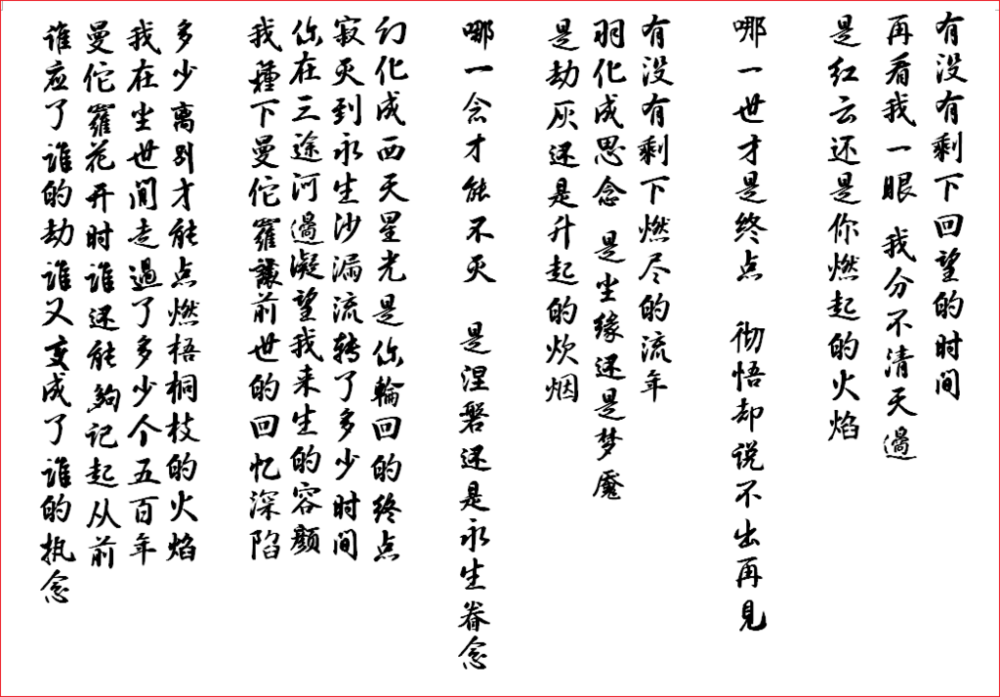 有没有剩下回望的时间
再看我一眼 我分不清天過
是红云还是你燃起的火焰
哪一世才是终点 彻悟却说不出再見
有没有剩下燃尽的流年
羽化成思念 是尘缘还是梦魘
是劫灰还是升起的炊烟
哪一念才能不灭 是涅磐还是永生眷念
幻化成西天星光是你輪回的终点
寂灭到永生沙漏流转了多少时间
你在三途河過凝望我来生的容颜
我種下曼佗羅讓前世的回忆深陷
多少离别才能点燃梧桐枝的火焰
我在尘世间走過了多少个五百年
曼佗羅花开时谁还能夠记起从前
谁应了谁的劫谁又变成了谁的执念